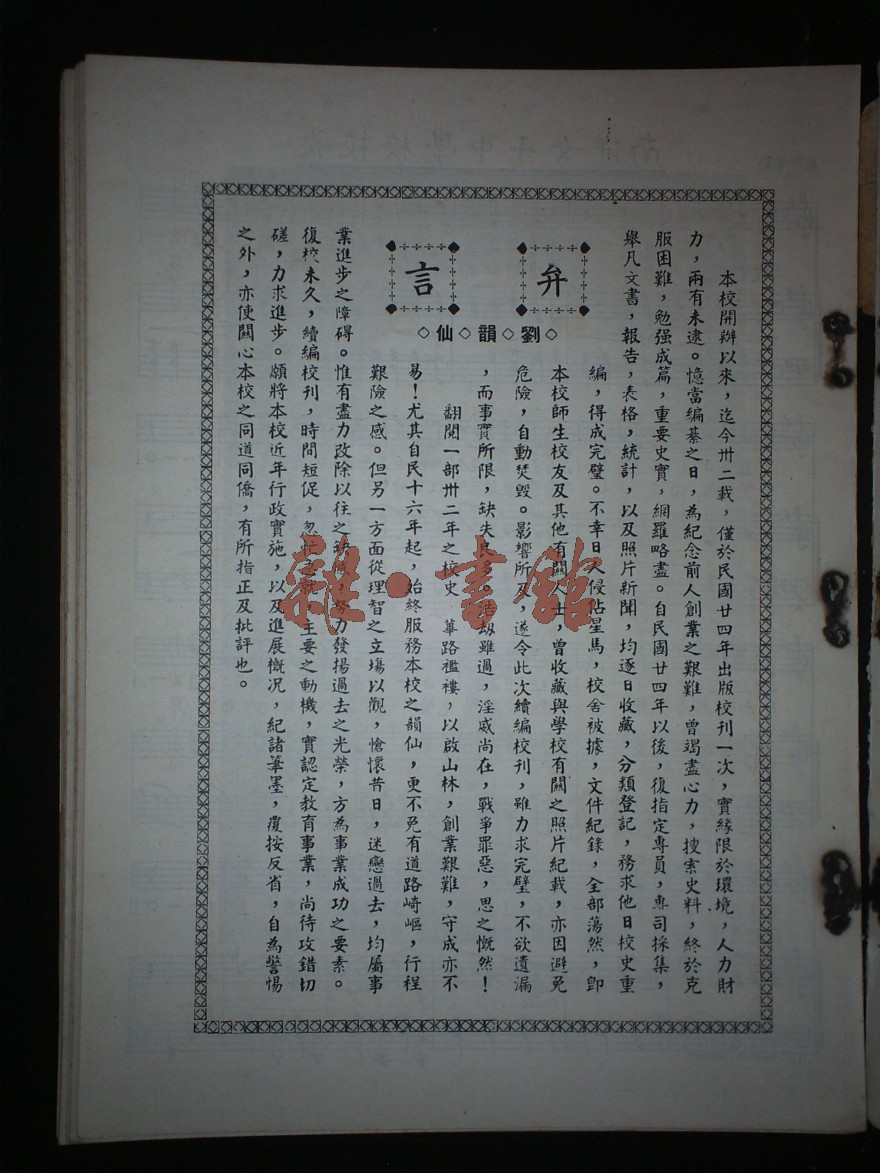 弁言
◇劉◇韻◇仙◇
本校開辦以來，迄今卅二載，僅於民國廿四年出版校刊一次，實緣限於環境，人力財
力，兩有未逮。憶當編纂之日，為紀念前人創業之艱難，曾竭盡心力，搜索史料，終於克
服困難，勉强成篇，重要史實，網羅略盡。自民國廿四年以後，復指定專員，專司採集，
舉凡文書，報告，表格，統計，以及照片新聞，均逐日收藏，分類登記，務求他日校史重
編，得成完璧。不幸日人侵佔星馬，校舍被據，文件紀錄，全部蕩然，卽
本校師生校友及其他有關人士，曾收藏與學校有關之照片紀載，亦因避免
危險，自動焚毀。影響所及，遂令此次續編校刊，雖力求完璧，不欲遺漏
，而事實所限，缺失良多。浩劫雖過，淫威尚在，戰爭罪惡，思之慨然！
翻閱一部卅二年之校史 蓽路襤褸，以啟山林，創業艱難，守成亦不
易！尤其自民十六年起，始終服務本校之韻仙，更不免有道路崎嶇，行程
艱險之感。但另一方面從理智之立塲以觀，愴懷昔日，迷戀過去，均屬事
業進步之障碍。惟有盡力改除以往之缺憾，努力發揚過去之光榮，方為事業成功之要素。
復校未久，續編校刊，時間短促，忽忙 主要之動機，實認定教育事業，尚待攻錯切
磋，力求進步。願將本校近年行政實施，以及進展慨况，紀諸筆墨，覆按反省，自為警惕
之外，亦使關心本校之同道同僑，有所指正及批評也。
雜·書館